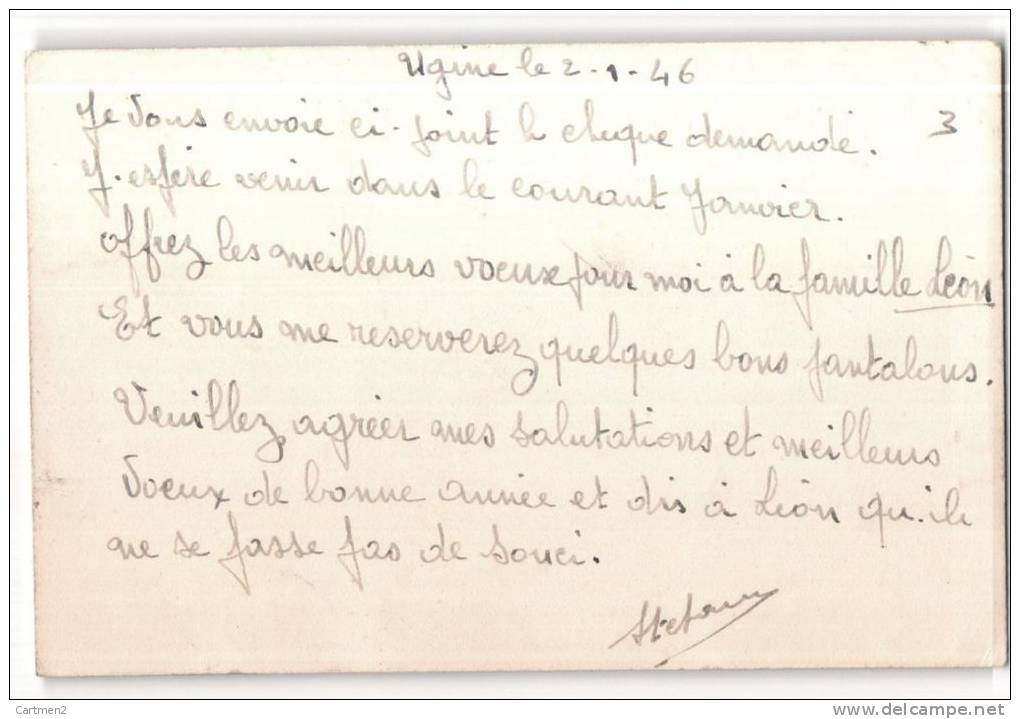 Ugine le 2-1-46
3
Je vous envoie ci-joint le chèque demandé.
J-espère venir dans le courant Janvier.
offrez les meilleurs voeux pour moi à la famille Léon
Et vous me reserverez quelques bons pantalons.
Veuillez agréer mes salutations et meilleurs
voeux de bonne année et dis à Léon qu-ils
ne se fasse pas de souci.
Cartmen2
www.delcampe.net